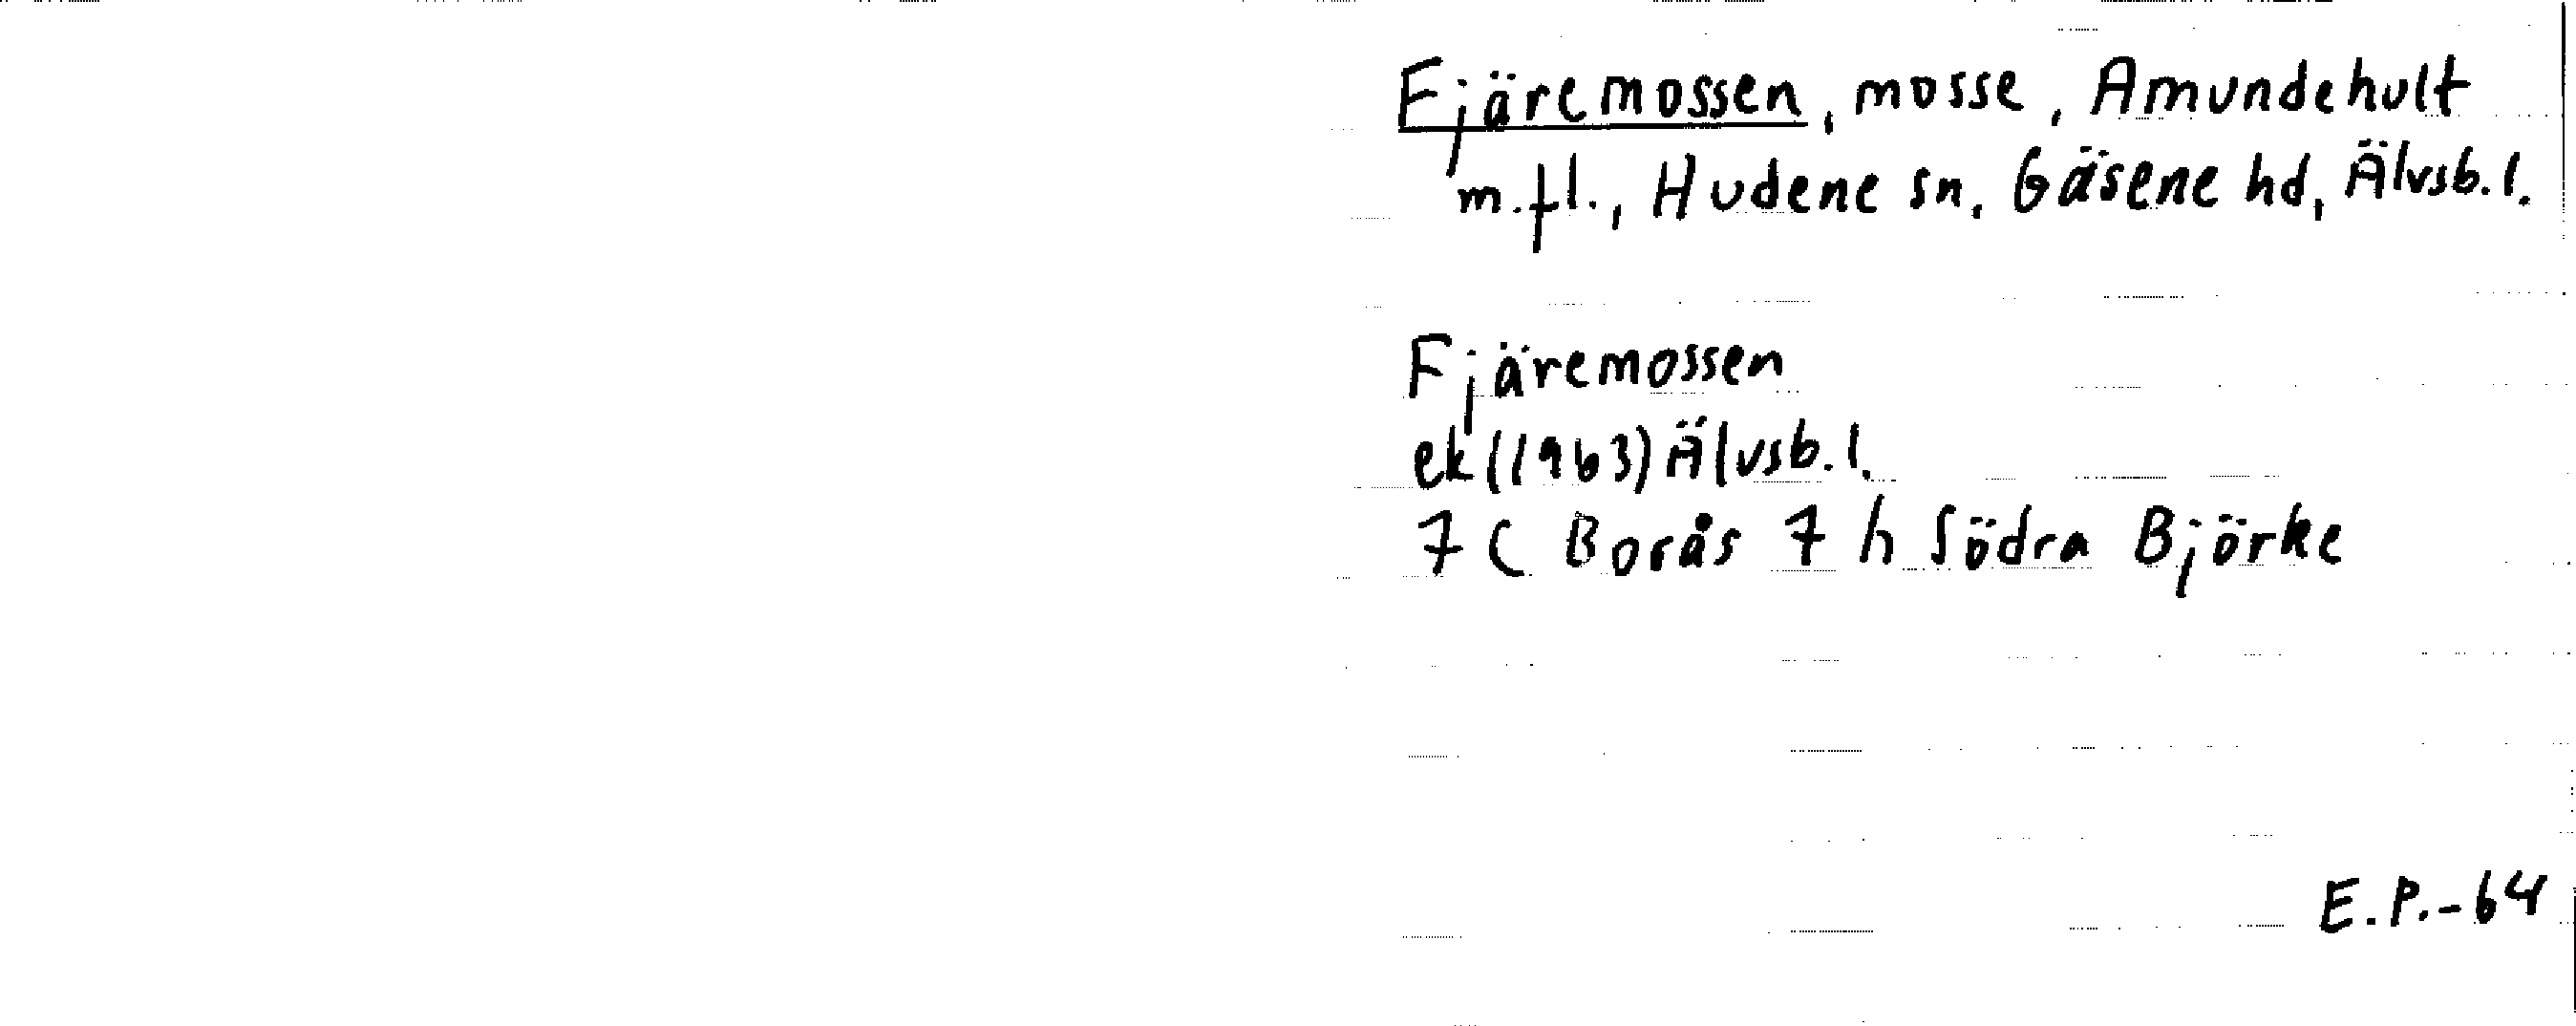 Fjäremossen, mosse, Amundehult
m.fl., Hudene sn, Gäsene hd, Älvsb.l.
Fjäremossen
ek (1963) Älvsb.l.
7 C Borås 7 h Södra Björke
E.P.-64